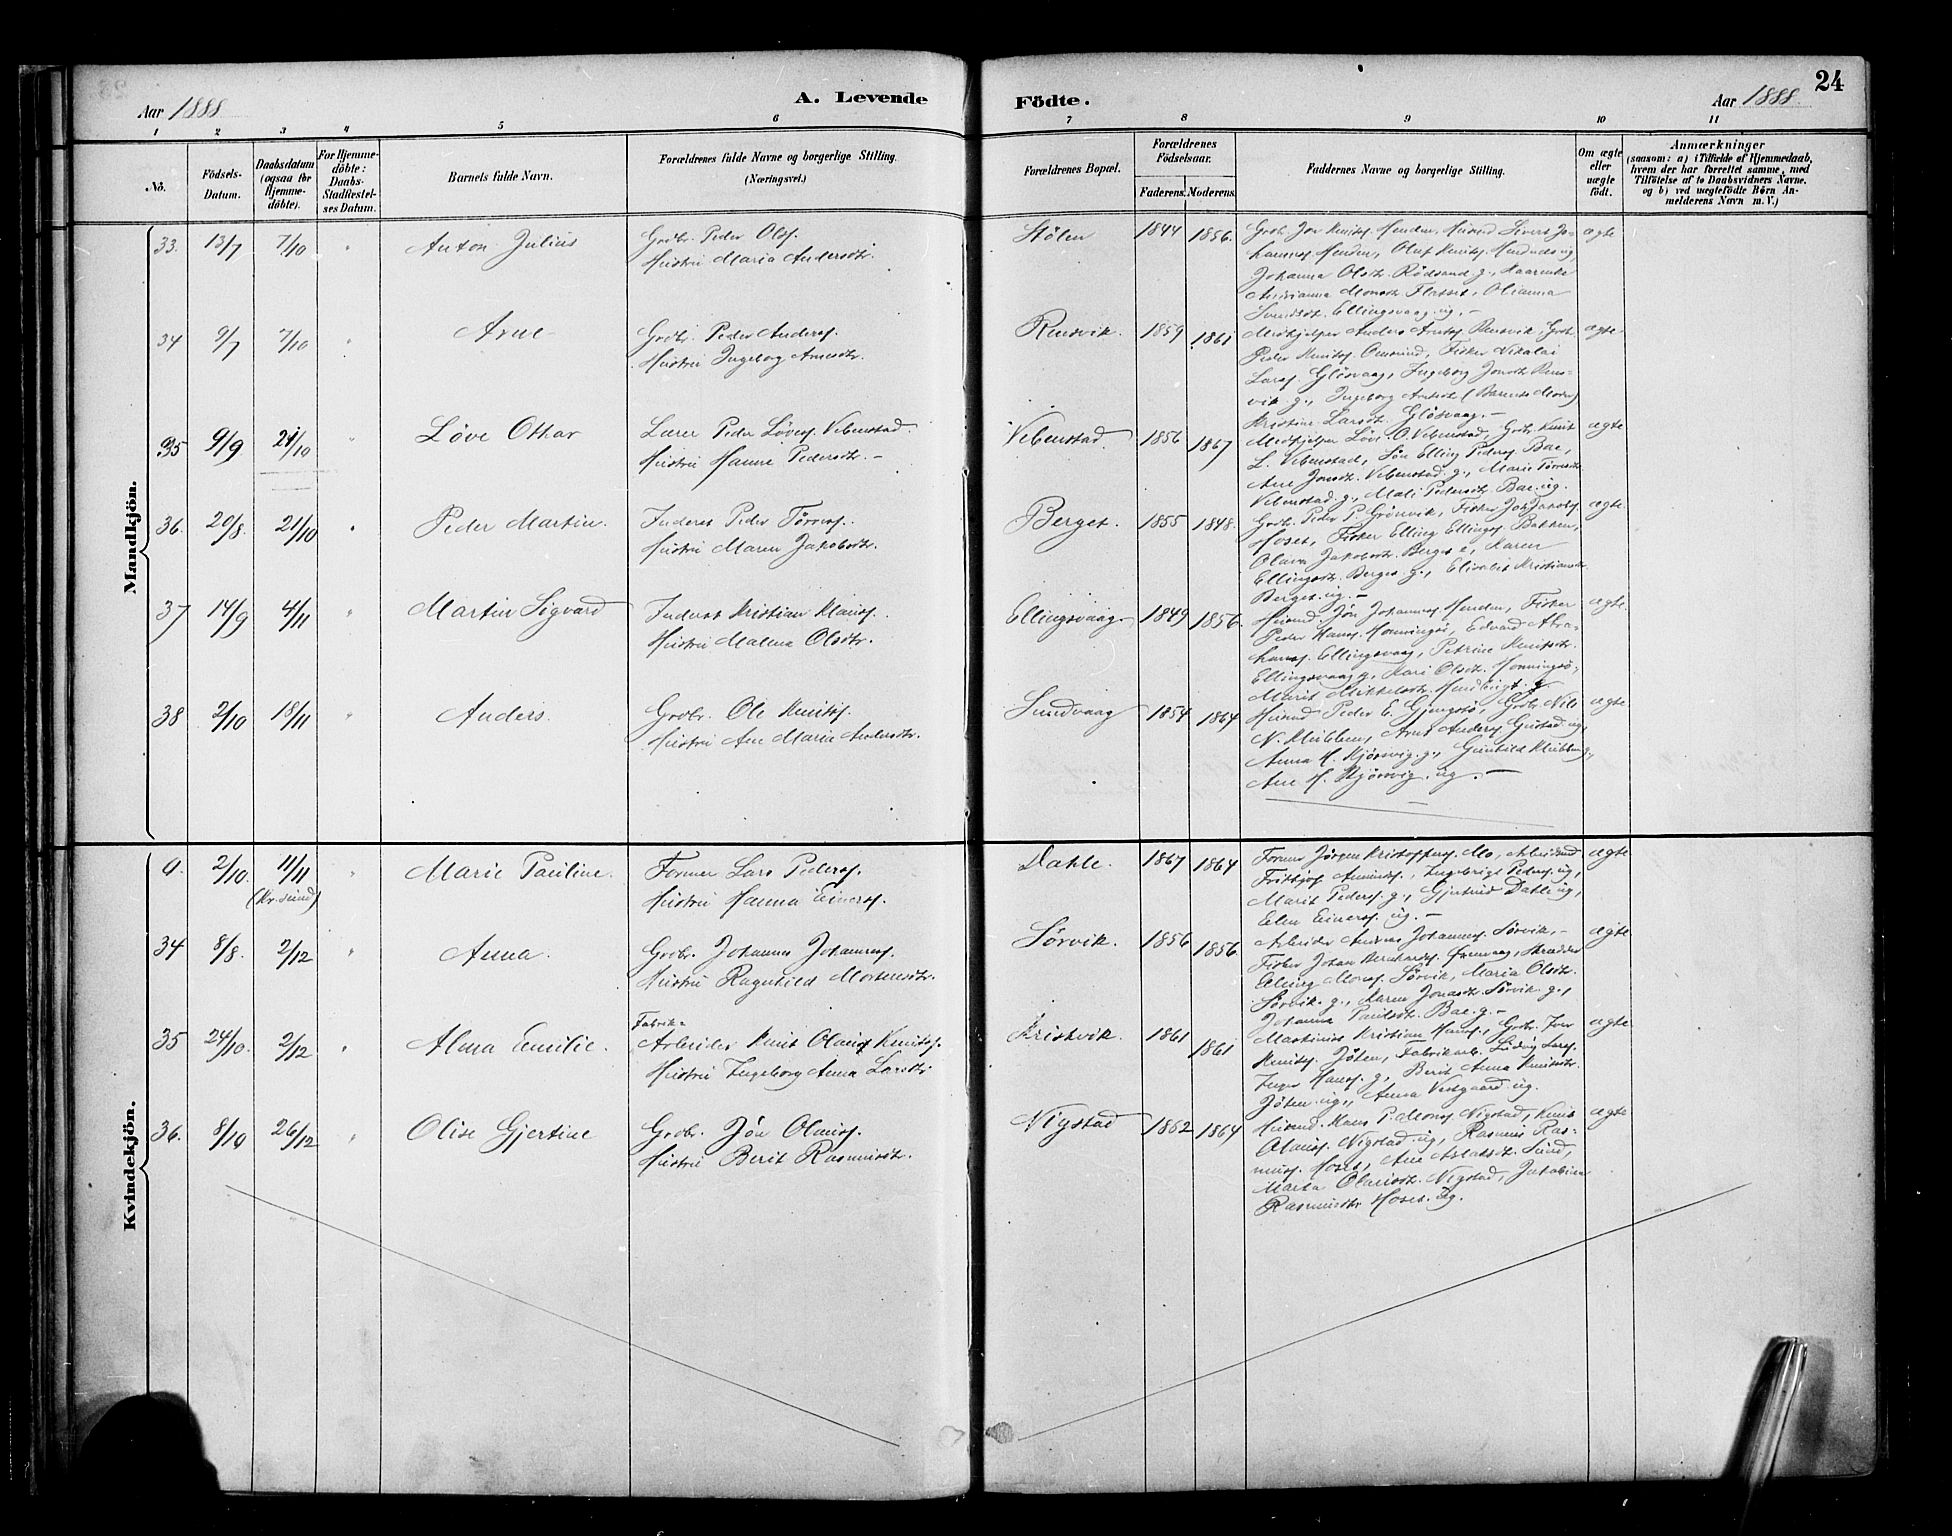 24
Aar 1888
A. Levende
Födte.
Aar 1888.
1 2 3 4 5 6 7 8 9 10 11
No.
Födsels-Datum.
Daabsdatum (ogsaa för Hjemme-döbte).
For Hjemme-döbte: Daabs-Stadfæstel-ses Datum.
Barnets fulde Navn.
Forældrenes fulde Navne og borgerlige Stilling.
(Næringsvei.)
Forældrenes Bopæl.
Forældrenes Födselsaar.
Faderens. Moderens.
Faddernes Navne og borgerlige Stilling.
Om ægte eller uægte födt.
Anmærkninger
(saasom: a) i Tilfælde af Hjemmedaab,
hvem der har forrettet samme, med
Tilföielse af to Daabsvidners Navne,
og b) ved uægtefödte Börn An-
melderens Navn m. V.)
Mandkjön.
33. 13/7 7/10 " Anton Julius
Grdbr. Peder Ols.
Hustru Maria Andersdtr.
Stölen 1844 1856. ægte
Grdb. Jon Knuts. Henden, Sivert Jo-
hanns. Henden, Oluf Knuts. ug,
Johanna Olsdtr. Rödsand g.,
Monsdtr. Flatset, Olianna
Ellingsvaag ug. -
34 9/7 7/10 " Arne
Grdbr. Peder Anders.
Hustru Ingeborg Arnesdtr.
Rensvik. 1859 1861 ægte
Medhjelper Anders Arnts. Rensvik, Grdb.
Peder Knuts. Omsund, Fisker Nikolai
Lars. Glösvaag, Ingeborg Jonsdtr. Rens-
vik g., Ingeborg Arnesdt. (Barnets Moder)
Kristine Larsdt. Glösvaag. -
35 9/9 21/10 " Löve Othar
Lærer Peder Löves. Vebenstad.
Hustru Hanna Pedersdtr. -
Vebenstad 1856 1867 ægte
Medhjelper Löve O. Vebenstad, Grdb. Knut
L. Vebenstad, Sön Elling Peders. Bae,
Ane Jonsdt. Vebenstad g., Marie
Vebenstad g., Mali Pedersdt. Bae ug.
36. 20/8. 21/10 " Peder Martin.
Inderst Peder Törres.
Hustru Maren Jakobsdtr.
Berget. 1855 1848. ægte.
Grdb. Peder P. Grönvik, Fisker Jakobs.
Hoset, Fisker Elling Ellings. Bakken,
Olava Jakobsdt. Berget e., Karen
Ellingsdt. Berget g., Elisabet Kristiansdt.
Berget ug. -
37 14/9 4/11 " Martin Sigvard
Inderst Kristian Klaus.
Hustru Malena Olsdtr.
Ellingsvaag. 1849 1856. ægte.
Jön Johannes. Henden, Fisker
Peder Hans. Honningsö, Edvard Abra-
hams. Ellingsvaag, Petrine Knutsdt.
Ellingsvaag g., Kari Olsdt. Honningsö,
Marit Mikkelsdt. g.
38 2/10 18/11 " Anders.
Grdbr. Ole Knuts.
Hustru Ane Marie Andersdtr.
Sundvaag 1854 1864 ægte
Peder E. Gjengstö, Grdb. Nils
N. Klubben, Arnt Anders. Gustad ug,
Anna H. Kjörsvig g., Gunhild Klubben g.,
Ane H. Kjörsvig ug. -
Kvindekjön.
9. 2/10. 11/11 (Kr.sund) " Marie Pauline.
Former Lars Peders.
Hustru Hanna Einers.
Dahle. 1867 1864 ægte
Former Jörgen Kristoffers. Mo, Arbeidsmd
Fritkjof Amunds., Ingebrigt Peders. ug,
Marit Peders. g., Gjertrud Dahle ug,
Elen Einers. ug. -
34 8/8. 2/12 " Anna.
Grdbr. Johannes Johannes.
Hustru Ragnhild Mortensdtr.
Sörvik. 1856 1856 ægte
Arbeider Anders Johannes. Sörvik, -
Fisker Johan Bernhards. Örenvaag, Skrædder
Elling Mons. Sörvik, Maria Olsdtr.
Sörvik g., Karen Jonasdt. Sörvik g.,
Johanna Paulsdt. Bae g. -
35 24/10. 2/12 " Alma Emilie.
Fabrik-
Arbeider Knut Olaus Knuts.
Hustru Ingeborg Anna Larsdtr
Kristvik. 1861 1861 ægte
Martinus Kristian Hans., Grdb. Iver
Knuts. Jöten, Fabrikarb. Ludvig Lars.
Inger Hans. g., Berit Anna Knutsdtr.
Jöten ug., Anna Vestgaard ug.
36. 8/10 26/12 " Olise Gjertine
Grdbr. Jön Olaus.
Hustru Berit Rasmusdtr.
Nigstad 1862 1864 ægte
Hans P. Mons. Nigstad, Knut
Olaus. Nigstad ug, Rasmus Ras-
mus. Hoset, Ane Aslaksdt. Sund,
Marta Olausdtr. Nigstad, Jakobine
Rasmusdtr Hoset ug.